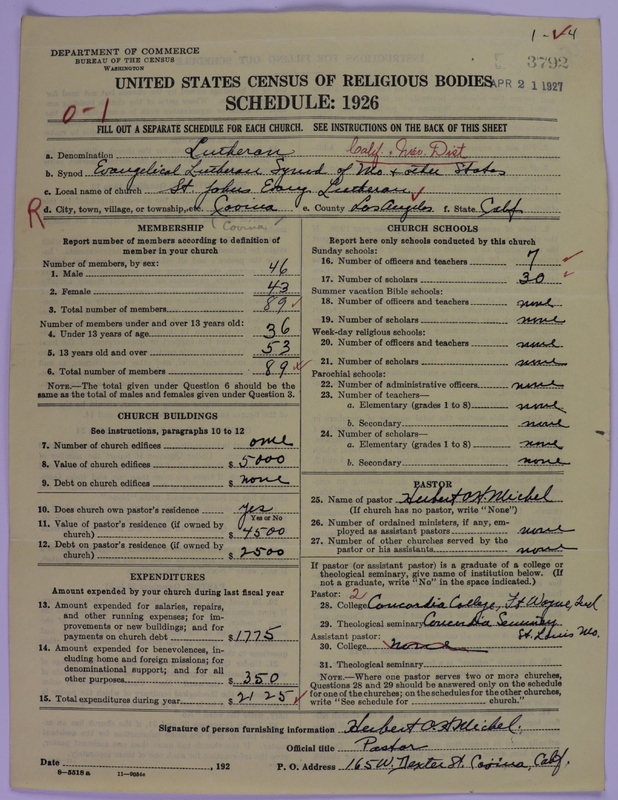 1-4
DEPARTMENT OF COMMERCE
BUREAU OF THE CENSUS
WASHINGTON
3792
APR 21 1927
UNITED STATES CENSUS OF RELIGIOUS BODIES
SCHEDULE: 1926
0-1
FILL OUT A SEPARATE SCHEDULE FOR EACH CHURCH. SEE INSTRUCTIONS ON THE BACK OF THIS SHEET
a. Denomination Lutheran Calif. Nev. Dist
b. Synod Evangelical Lutheran Synod of Mo & other States
c. Local name of church St. Johns Evang. Lutheran
R d. City, town, village, or township, etc. Covina e. County Los Angeles f. State Calif
(Covina)
MEMBERSHIP
Report number of members according to definition of
member in your church
Number of members, by sex:
1. Male 46
2. Female 43
3. Total number of members 89
Number of members under and over 13 years old:
4. Under 13 years of age 36
5. 13 years old and over 53
6. Total number of members 89
NOTE.—The total given under Question 6 should be
same as the total of males and females given under Question 3.
CHURCH BUILDINGS
See instructions, paragraphs 10 to 12
7. Number of church edifices one
8. Value of church edifices $ 5000
9. Debt on church edifices $ none
10. Does church own pastor's residence yes
Yes or No
11. Value of pastor's residence (if owned by
church) $ 4500
12. Debt on pastor's residence (if owned by
church) $ 2500
EXPENDITURES
Amount expended by your church during last fiscal year
13. Amount expended for salaries, repairs,
and other running expenses; for im-
provements or new buildings; and for
payments on church debt $ 1775
14. Amount expended for benevolences, in-
cluding home and foreign missions; for
denominational support; and for all
other purposes $ 350
15. Total expenditures during year $ 2125
CHURCH SCHOOLS
Report here only schools conducted by this church
Sunday schools:
16. Number of officers and teachers 7
17. Number of scholars 30
Summer vacation Bible schools:
18. Number of officers and teachers none
19. Number of scholars none
Week-day religious schools:
20. Number of officers and teachers none
21. Number of scholars none
Parochial schools:
22. Number of administrative officers none
23. Number of teachers—
a. Elementary (grades 1 to 8) none
b. Secondary none
24. Number of scholars—
a. Elementary (grades 1 to 8) none
b. Secondary none
PASTOR
25. Name of pastor Herbert O. H. Michel
(If church has no pastor, write "None")
26. Number of ordained ministers, if any, em-
ployed as assistant pastors none
27. Number of other churches served by the
pastor or his assistants none
If pastor (or assistant pastor) is a graduate of a college or
theological seminary, give name of institution below. (If
not a graduate, write "No" in the space indicated.)
Pastor: 2
28. College Concordia College, Ft Wayne, Ind
29. Theological seminary Concordia Seminary
St. Louis Mo.
Assistant pastor:
30. College none
31. Theological seminary
NOTE.—Where one pastor serves two or more churches,
Questions 28 and 29 should be answered only on the schedule
for one of the churches; on the schedules for the other churches,
write "See schedule for church."
Signature of person furnishing information Herbert O. H. Michel
Official title Pastor
Date , 192 P. O. Address 165 W. Dexter St. Covina, Calif.
8-5518 a